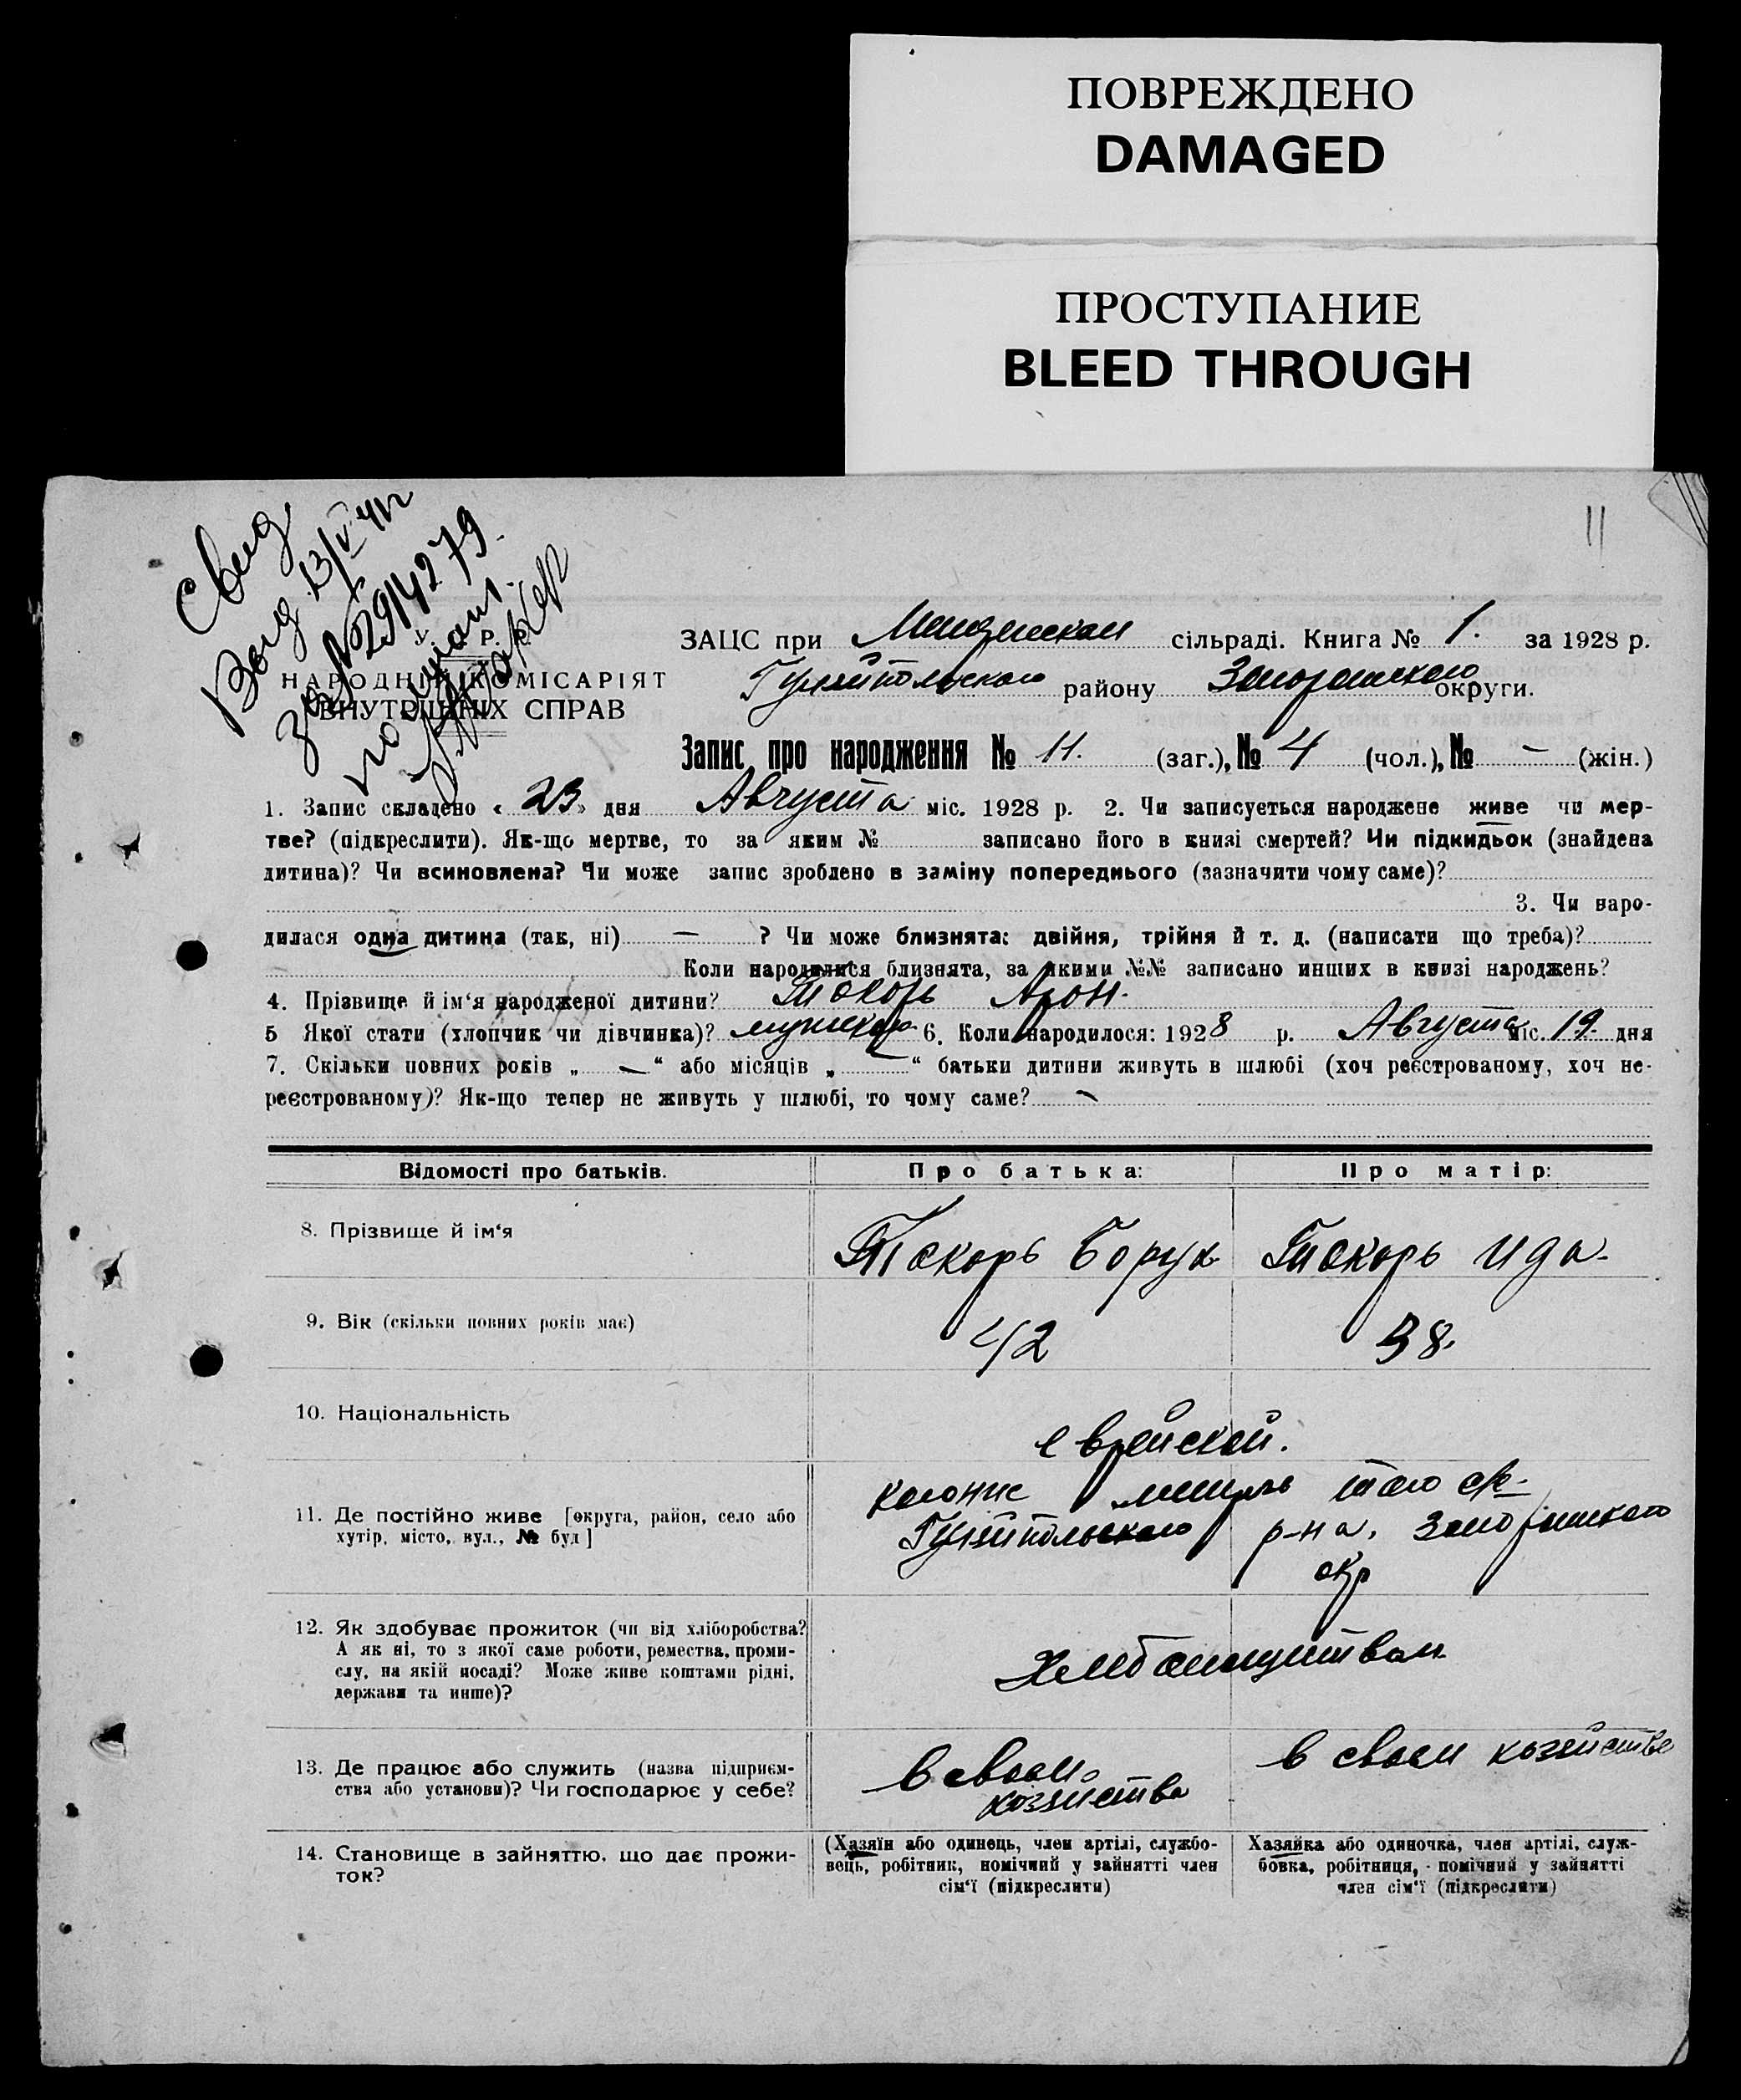 ПОВРЕЖДЕНО
DAMAGED
ПРОСТУПАНИЕ
BLEED THROUGH
11
Свид
Выд 13/V 41г
за № 294279.
У. Р. Р.
НАРОДНІЙ КОМІСАРІЯТ
ВНУТРІШНІХ СПРАВ
ЗАЦС при сільраді. Книга № 1. за 1928 р.
Гуляйпольского району Запорожского округи.
Запис про народження № 11. (заг.), № 4 (чол.), № — (жін.)
1. Запис складено « 23 » дня Августа міс. 1928 р. 2. Чи записується народжене живе чи мер-
тве? (підкреслити). Як-що мертве, то за яким № записано його в книзі смертей? Чи підкидьок (знайдена
дитина)? Чи всиновлена? Чи може запис зроблено в заміну попереднього (зазначити чому саме)?
3. Чи наро-
дилася одна дитина (так, ні) — ? Чи може близнята: двійня, трійня й т. д. (написати що треба)?
Коли народилися близнята, за якими №№ записано инших в книзі народжень?
4. Прізвище й ім‘я народженої дитини? Токорь Арон.
5 Якої стати (хлопчик чи дівчинка)? мужской 6. Коли народилося: 1928 р. Августа міс. 19. дня
7. Скільки повних років „ — “ або місяців „ — “ батьки дитини живуть в шлюбі (хоч реєстрованому, хоч не-
реєстрованому)? Як-що тепер не живуть у шлюбі, то чому саме? —
Відомості про батьків. Про батька: Про матір:
8. Прізвище й ім‘я Токорь Борух Токорь Ида.
9. Вік (скільки повних років має) 42 38.
10. Національність еврейской.
11. Де постійно живе [округа, район, село або
хутір, місто, вул., № буд]
колоние того с/с
Гуляйпольского р-на, Запорожского
окр
12. Як здобуває прожиток (чи від хліборобства?
А як ні, то з якої саме роботи, ремества, проми-
слу, на якій посаді? Може живе коштами рідні,
держави та инше)?
Хлебопашеством
13. Де працює або служить (назва підприєм-
ства або установи)? Чи господарює у себе?
в своем
хозяйстве
в своем хозяйстве
14. Становище в зайняттю, що дає прожи-
ток?
(Хазяїн або одинець, член артілі, службо-
вець, робітник, помічний у зайнятті член
сім‘ї (підкреслити)
Хазяйка або одиночка, член артілі, служ-
бовка, робітниця, помічний у зайнятті
член сім‘ї (підкреслити)